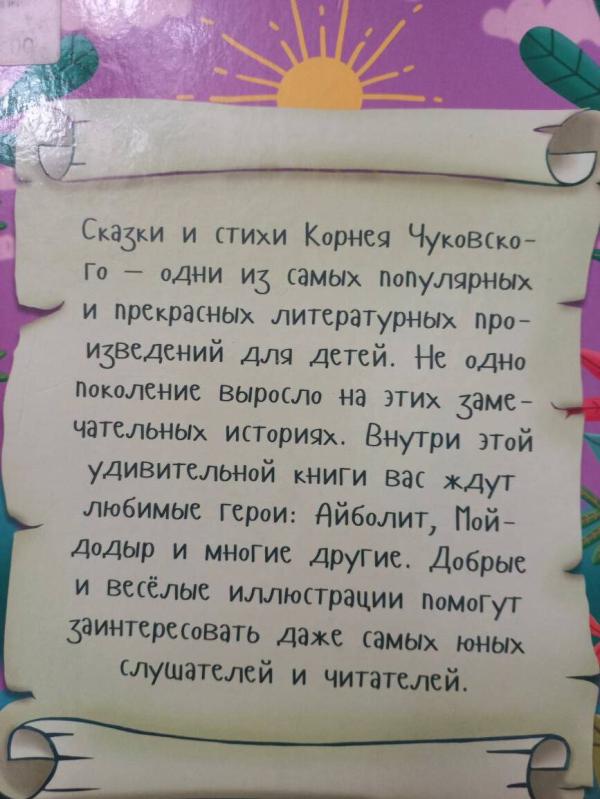 Сказки и стихи Корнея Чуковско-
го — одни из самых популярных
и прекрасных литературных про-
изведений для детей. Не одно
поколение выросло на этих заме-
чательных историях. Внутри этой
удивительной книги вас ждут
любимые герои: Айболит, Мой-
додыр и многие другие. Добрые
и весёлые иллюстрации помогут
заинтересовать даже самых юных
слушателей и читателей.